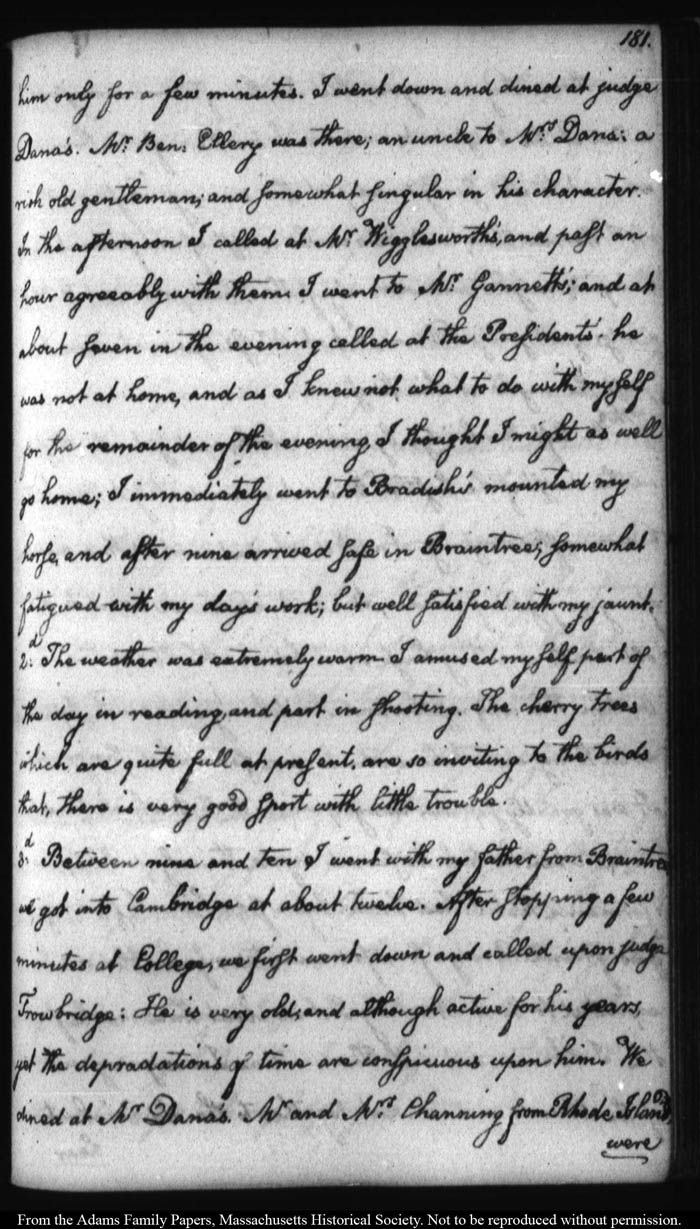 181.
him only for a few minutes. I went down and dined at judge
Dana's. Mr. Ben: Ellery was there; an uncle to Mrs. Dana: a
rich old gentleman; and somewhat singular in his character.
In the afternoon I called at Mr. Wigglesworth's, and past an
hour agreeably with them. I went to Mr. Gannett's; and at
about seven in the evening called at the President's. he
was not at home, and as I knew not what to do with myself
for the remainder of the evening, I thought I might as well
go home; I immediately went to Bradish's mounted my
horse, and after nine arrived safe in Braintree; somewhat
fatigued with my day's work; but well satisfied with my jaunt.
2:d The weather was extremely warm. I amused myself part of
the day in reading, and part in shooting. The cherry trees
which are quite full at present, are so inviting to the birds
that, there is very good sport with little trouble.
3:d Between nine and ten I went with my father from Braintree
we got into Cambridge at about twelve. After stopping a few
minutes at College, we first went down and called upon judge
Trowbridge: He is very old; and although active for his years,
yet the depradations of time are conspicuous upon him. We
dined at Mr Dana's. Mr and Mrs. Channing from Rhode Island,
were
From the Adams Family Papers, Massachusetts Historical Society. Not to be reproduced without permission